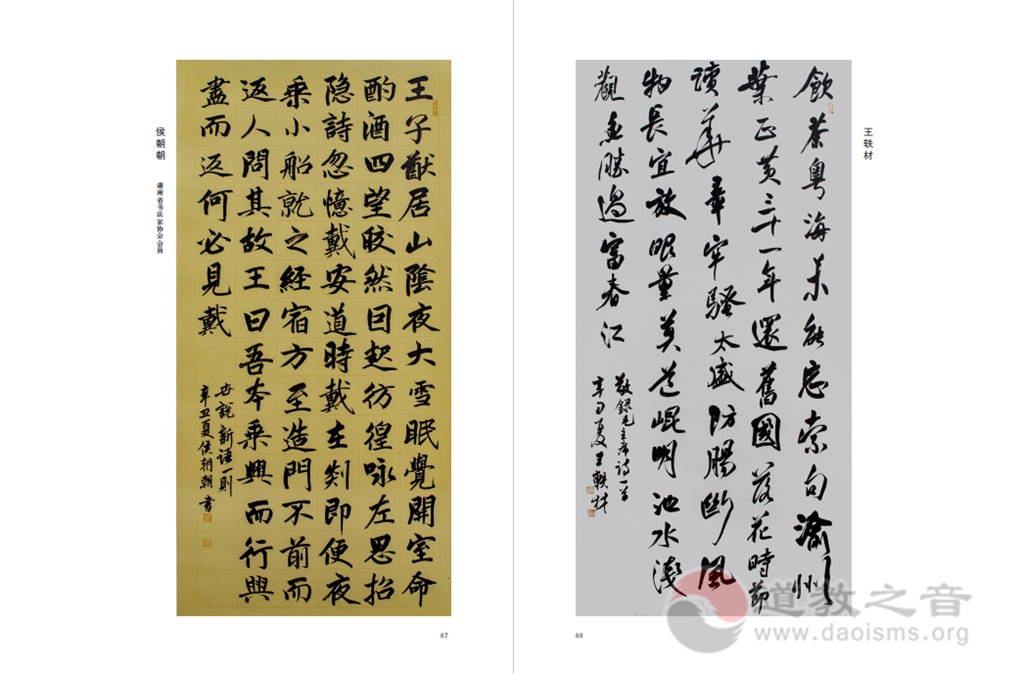 侯朝朝
湖南省书法家协会会员
王子猷居山陰夜大雪眠覺開室命
酌酒四望皎然因起彷徨咏左思招
隐詩忽憶戴安道時戴在剡即便夜
乘小船就之經宿方至造門不前而
返人問其故王曰吾本乘興而行興
盡而返何必見戴
世說新語一則
辛丑夏侯朝朝書
87
王轶材
飲茶粤海未能忘索句渝州
葉正黄三十一年還舊國落花時節
讀華章牢騷太盛防腸斷風
物長宜放眼量莫道崐明池水淺
觀魚勝過富春江
敬録毛主席詩一首
辛丑夏王軼材
88
道教之音
www.daoisms.org